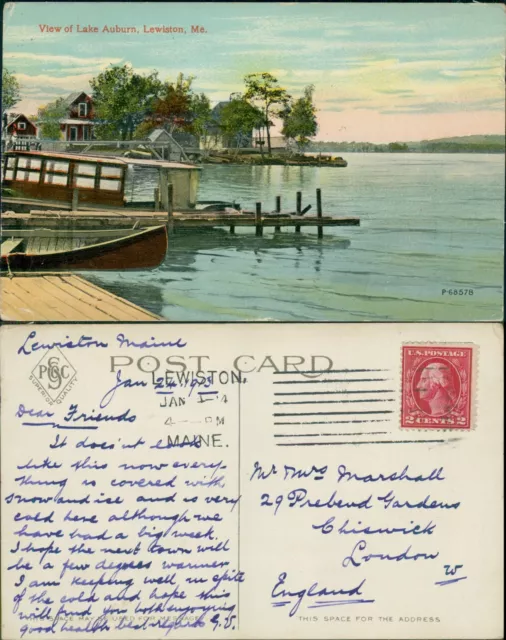 View of Lake Auburn, Lewiston, Me.
P-68578
Lewiston Maine
POST CARD
PSCO
SUPERIOR QUALITY
Jan 24
LEWISTON,
JAN
4- PM
MAINE.
U.S. POSTAGE
2 CENTS 2
Dear Friends
It does'nt
like this now every-
thing is covered with
snow and ice and is very
cold here although we
have had a big week.
I hope the next town will
be a few degrees warmer
I am keeping well in spite
of the cold and hope this
will find you both enjoying
good health best regards G.V.
Mr Mrs Marshall
29 Prebend Gardens
Chiswick
London
W
England
THIS SPACE FOR THE ADDRESS.